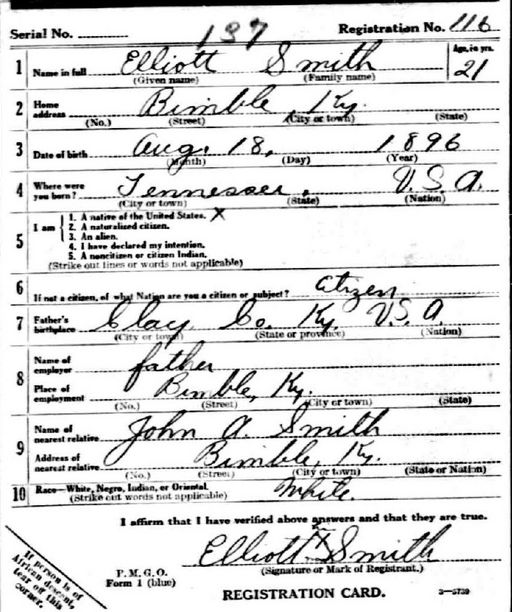 Serial No. 137 Registration No. 116
1 Name in full Elliott Smith Age, in yrs. 21
(Given name) (Family name)
2 Home address Bimble, Ky.
(No.) (Street) (City or town) (State)
3 Date of birth Aug. 18, 1896
(Month) (Day) (Year)
4 Where were you born? Tennessee, U.S.A.
(City or town) (State) (Nation)
5 I am
1. A native of the United States. X
2. A naturalized citizen.
3. An alien.
4. I have declared my intention.
5. A noncitizen or citizen Indian.
(Strike out lines or words not applicable)
6 If not a citizen, of what Nation are you a citizen or subject? Citizen
7 Father's birthplace Clay Co. Ky. U.S.A
(City or town) (State or province) (Nation)
8 Name of employer father
Place of employment Bimble, Ky.
(No.) (Street) (City or town) (State)
9 Name of nearest relative John A. Smith
Address of nearest relative Bimble, Ky.
(No.) (Street) (City or town) (State or Nation)
10 Race—White, Negro, Indian, or Oriental. White.
(Strike out words not applicable)
I affirm that I have verified above answers and that they are true.
Elliott X Smith
P. M. G. O. (Signature or Mark of Registrant.)
Form 1 (blue) REGISTRATION CARD. 3—5739
If person is of
African descent,
tear off this
corner.